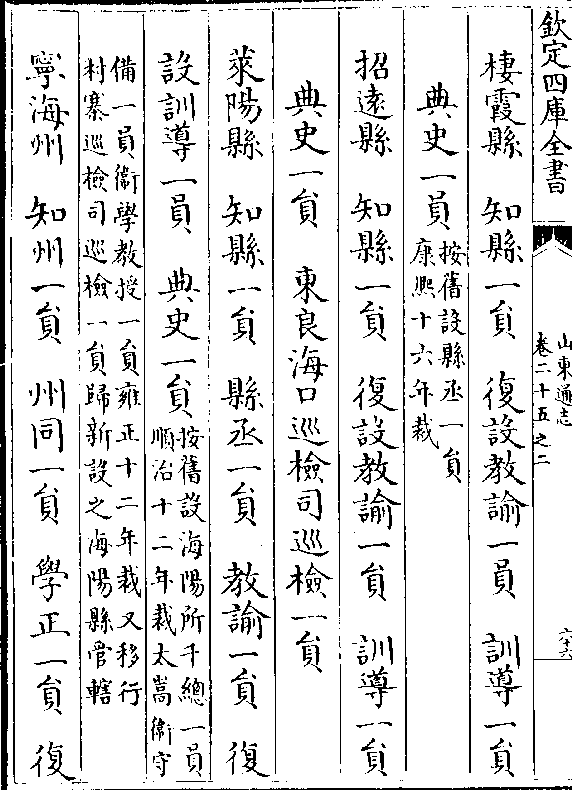 欽定四庫全書
山東通志
卷二十五之二
六十六
棲霞縣　知縣一員　復設教諭一員　訓導一員
典史一員
按舊設縣丞一員
康熙十六年裁
招遠縣　知縣一員　復設教諭一員　訓導一員
典史一員　東良海口巡檢司巡檢一員
萊陽縣　知縣一員　縣丞一員　教諭一員　復
設訓導一員　典史一員
按舊設海陽所千總一員
順治十二年裁太嵩衛守
備一員衛學教授一員雍正十二年裁又移行
村寨巡檢司巡檢一員歸新設之海陽縣管轄
寧海州　知州一員　州同一員　學正一員　復